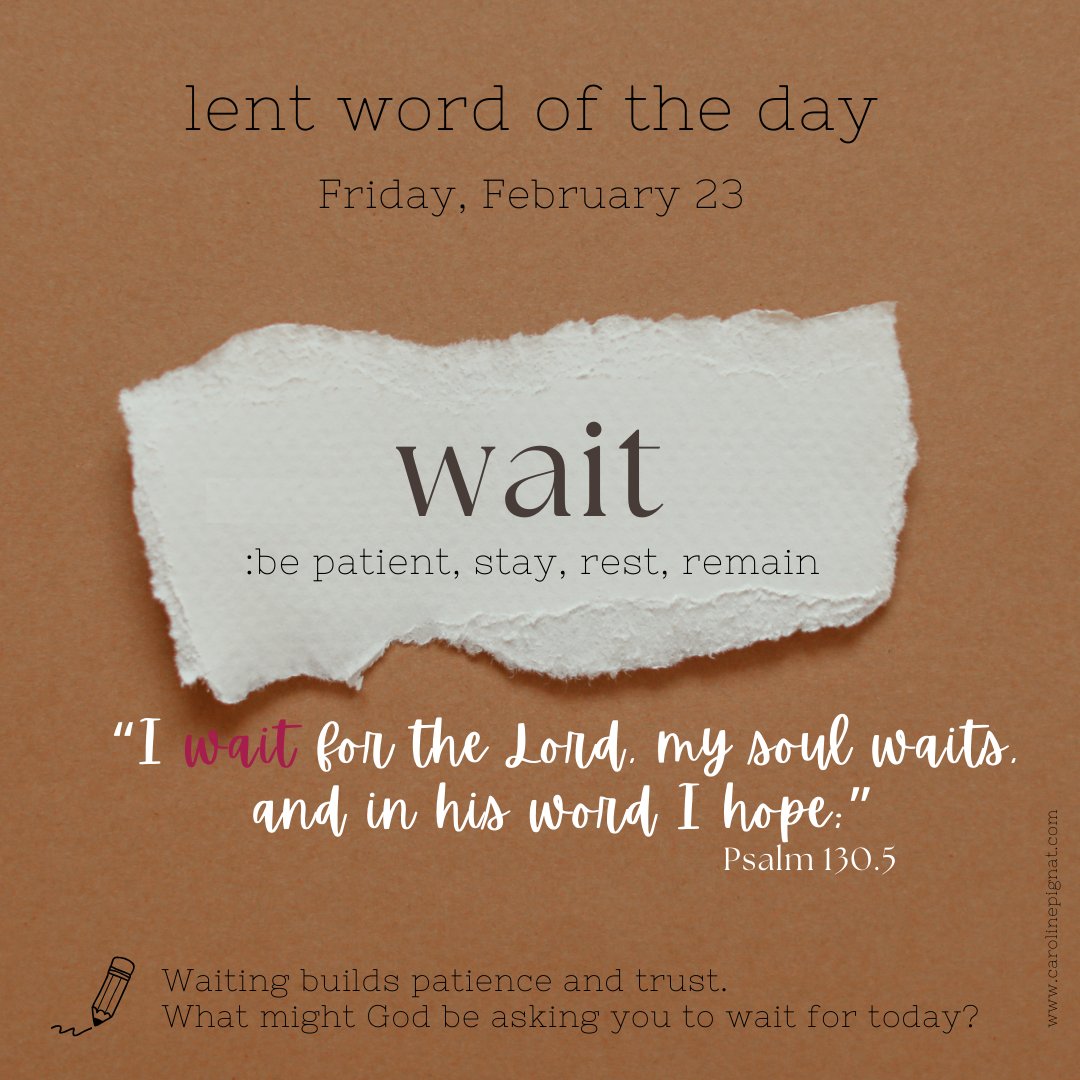 lent word of the day
Friday, February 23
wait
:be patient, stay, rest, remain
“I wait for the Lord, my soul waits,
and in his word I hope;”
Psalm 130.5
Waiting builds patience and trust.
What might God be asking you to wait for today?
www.carolinepignat.com